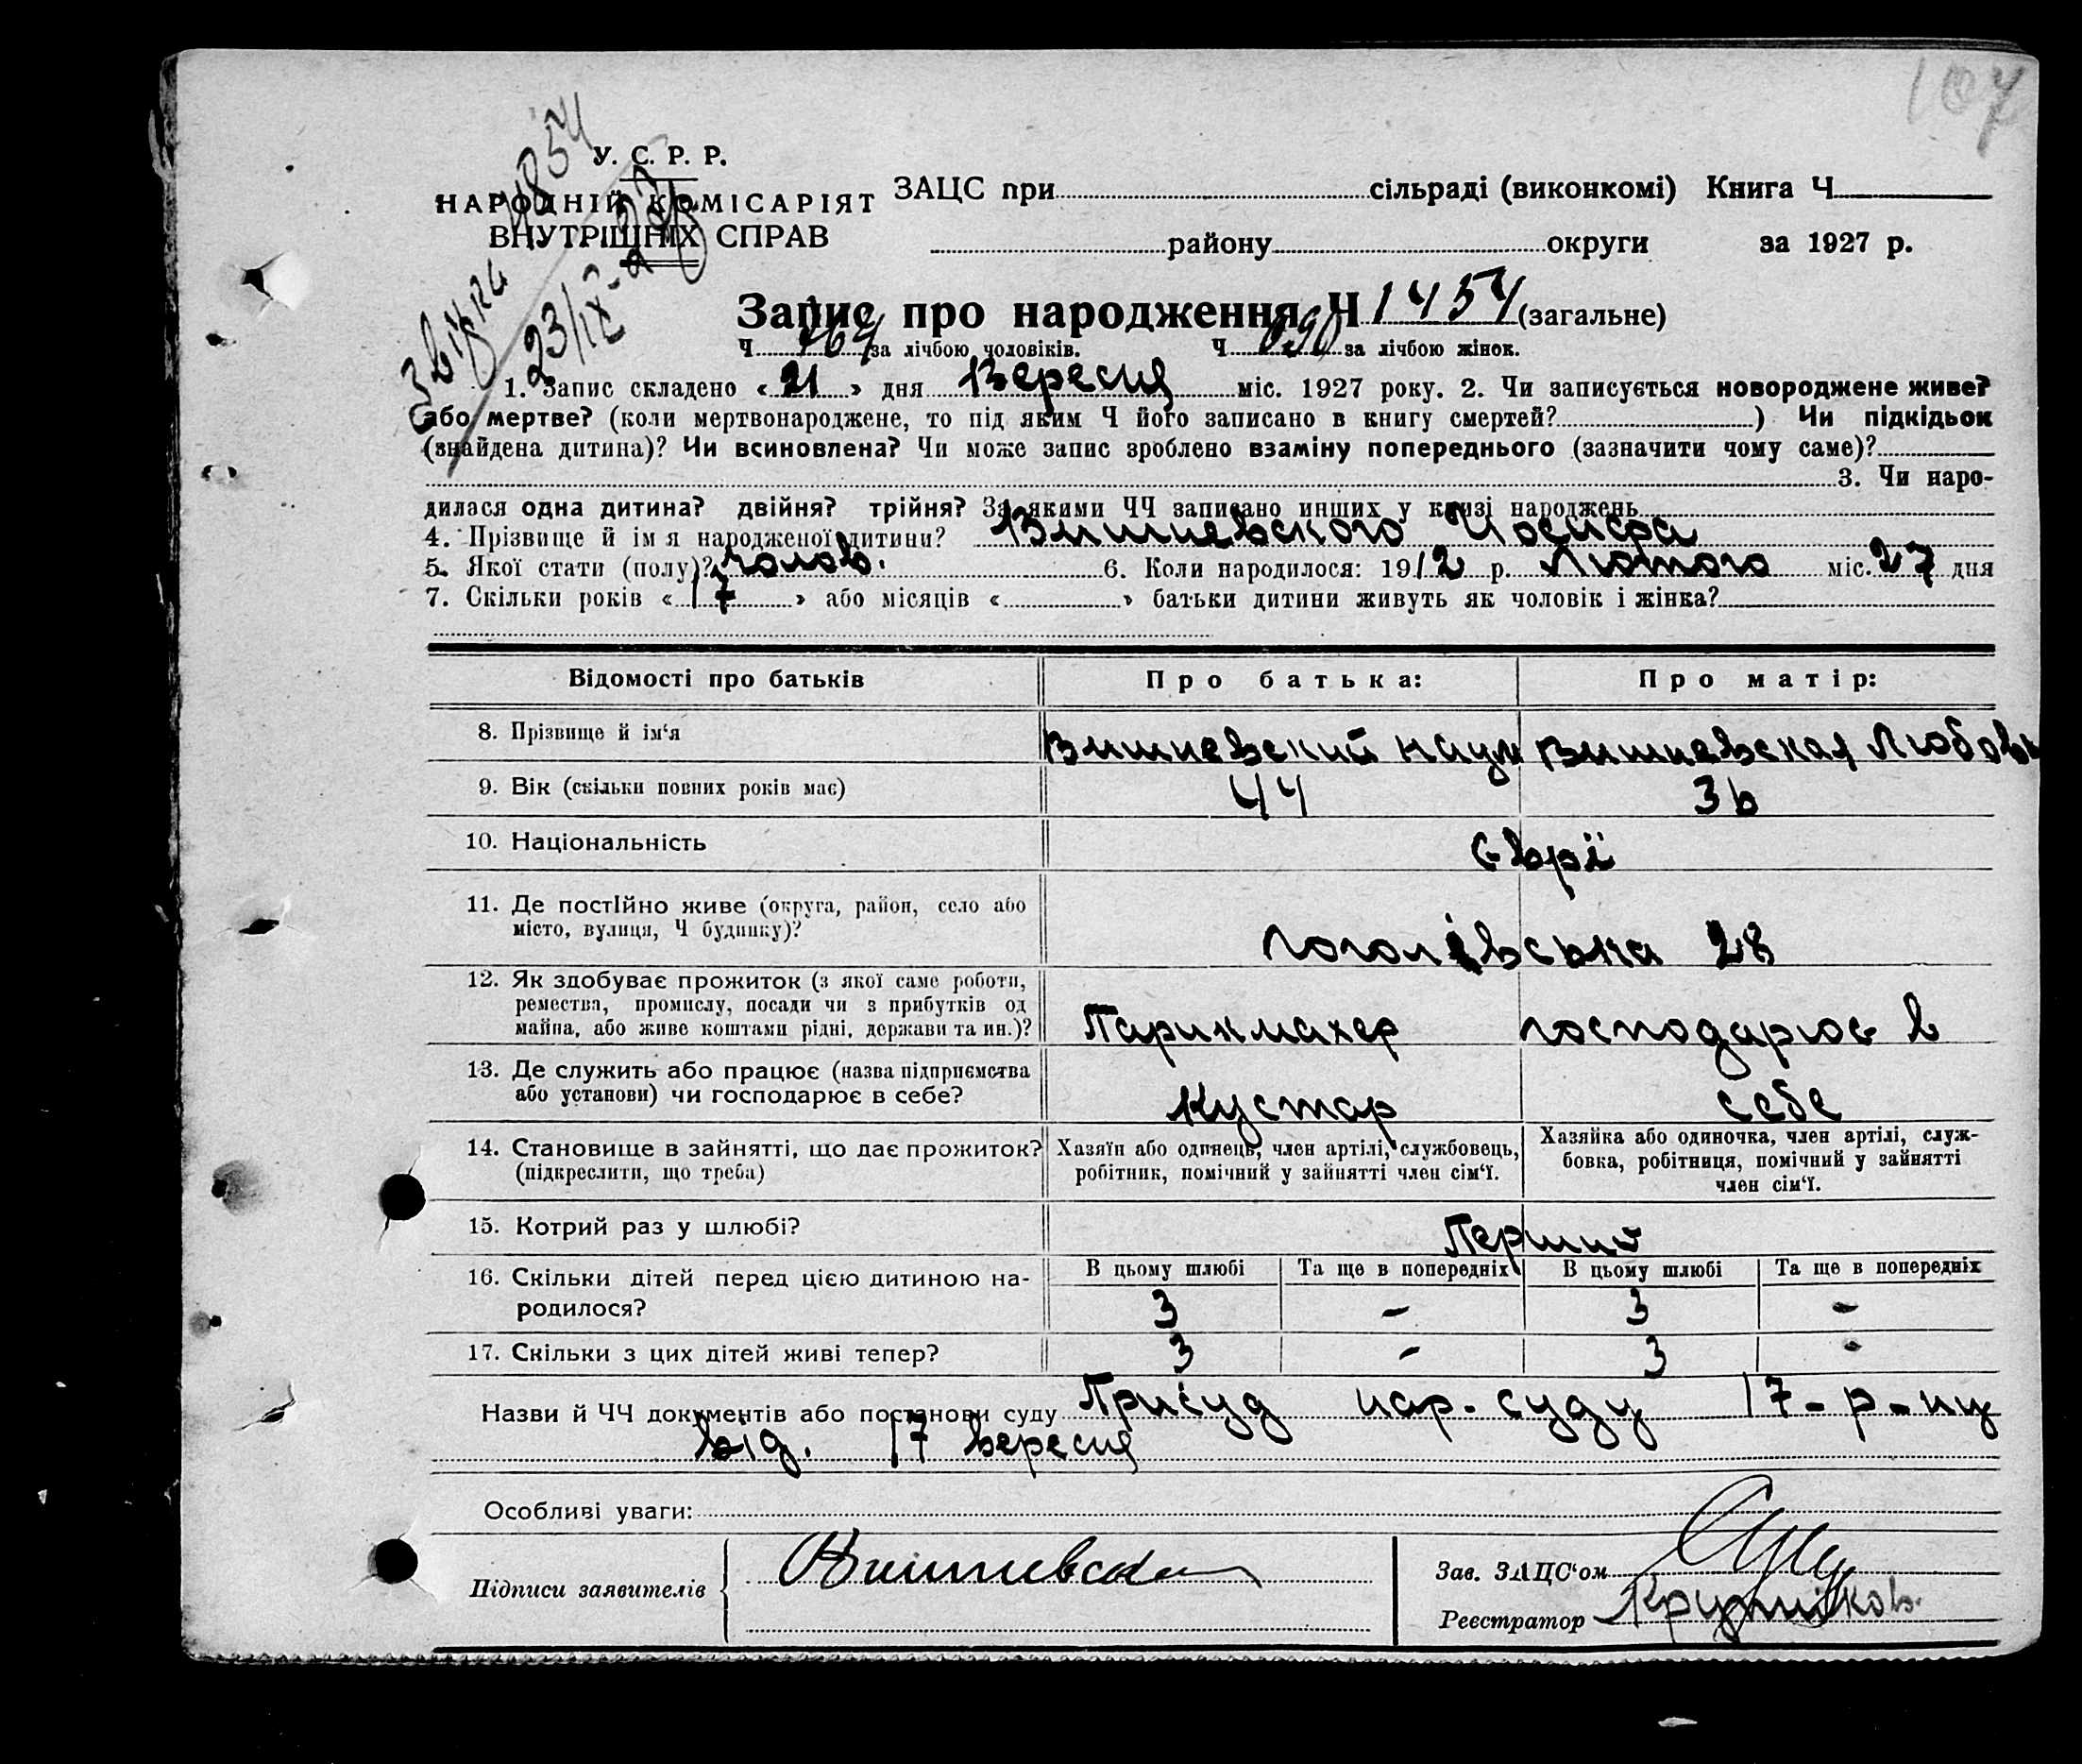 107
У. С. Р. Р.
НАРОДНІЙ КОМІСАРІЯТ
ВНУТРІШНІХ СПРАВ
ЗАЦС при сільраді (виконкомі) Книга Ч
району округи за 1927 р.
23/IX-27
Запис про народження Ч 1454 (загальне)
Ч 764 за лічбою чоловіків. Ч 690 за лічбою жінок.
1. Запис складено « 21 » дня Вересня міс. 1927 року. 2. Чи записується новороджене живе?
або мертве? (коли мертвонароджене, то під яким Ч його записано в книгу смертей? ) Чи підкідьок
(знайдена дитина)? Чи всиновлена? Чи може запис зроблено взаміну попереднього (зазначити чому саме)?
3. Чи наро-
дилася одна дитина? двійня? трійня? За якими ЧЧ записано инших у книзі народжень
4. Прізвище й ім я народженої дитини? Вишневского Иосифа
5. Якої стати (полу)? чолов. 6. Коли народилося: 1912 р. Лютого міс. 27 дня
7. Скільки років « 17 » або місяців « » батьки дитини живуть як чоловік і жінка?
Відомості про батьків Про батька: Про матір:
8. Прізвище й ім'я Вишневский Наум Вишневская Любовь
9. Вік (скільки повних років має) 44 36
10. Національність Євреї
11. Де постійно живе (округа, район, село або
місто, вулиця, Ч будинку)? Гоголівська 28
12. Як здобуває прожиток (з якої саме роботи,
ремества, промислу, посади чи з прибутків од
майна, або живе коштами рідні, держави та ин.)? Парикмахер господарює в
13. Де служить або працює (назва підприємства
або установи) чи господарює в себе? Кустар себе
14. Становище в зайнятті, що дає прожиток?
(підкреслити, що треба)
Хазяїн або одинець, член артілі, службовець,
робітник, помічний у зайнятті член сім'ї.
Хазяйка або одиночка, член артілі, служ-
бовка, робітниця, помічний у зайнятті
член сім'ї.
15. Котрий раз у шлюбі? Перший
16. Скільки дітей перед цією дитиною на-
родилося?
В цьому шлюбі Та ще в попередніх В цьому шлюбі Та ще в попередніх
3 - 3 -
17. Скільки з цих дітей живі тепер? 3 - 3 -
Назви й ЧЧ документів або постанови суду Присуд нар. суду 17-р-ну
від. 17 вересня
Особливі уваги:
Підписи заявителів
Зав. ЗАЦС'ом
Реєстратор